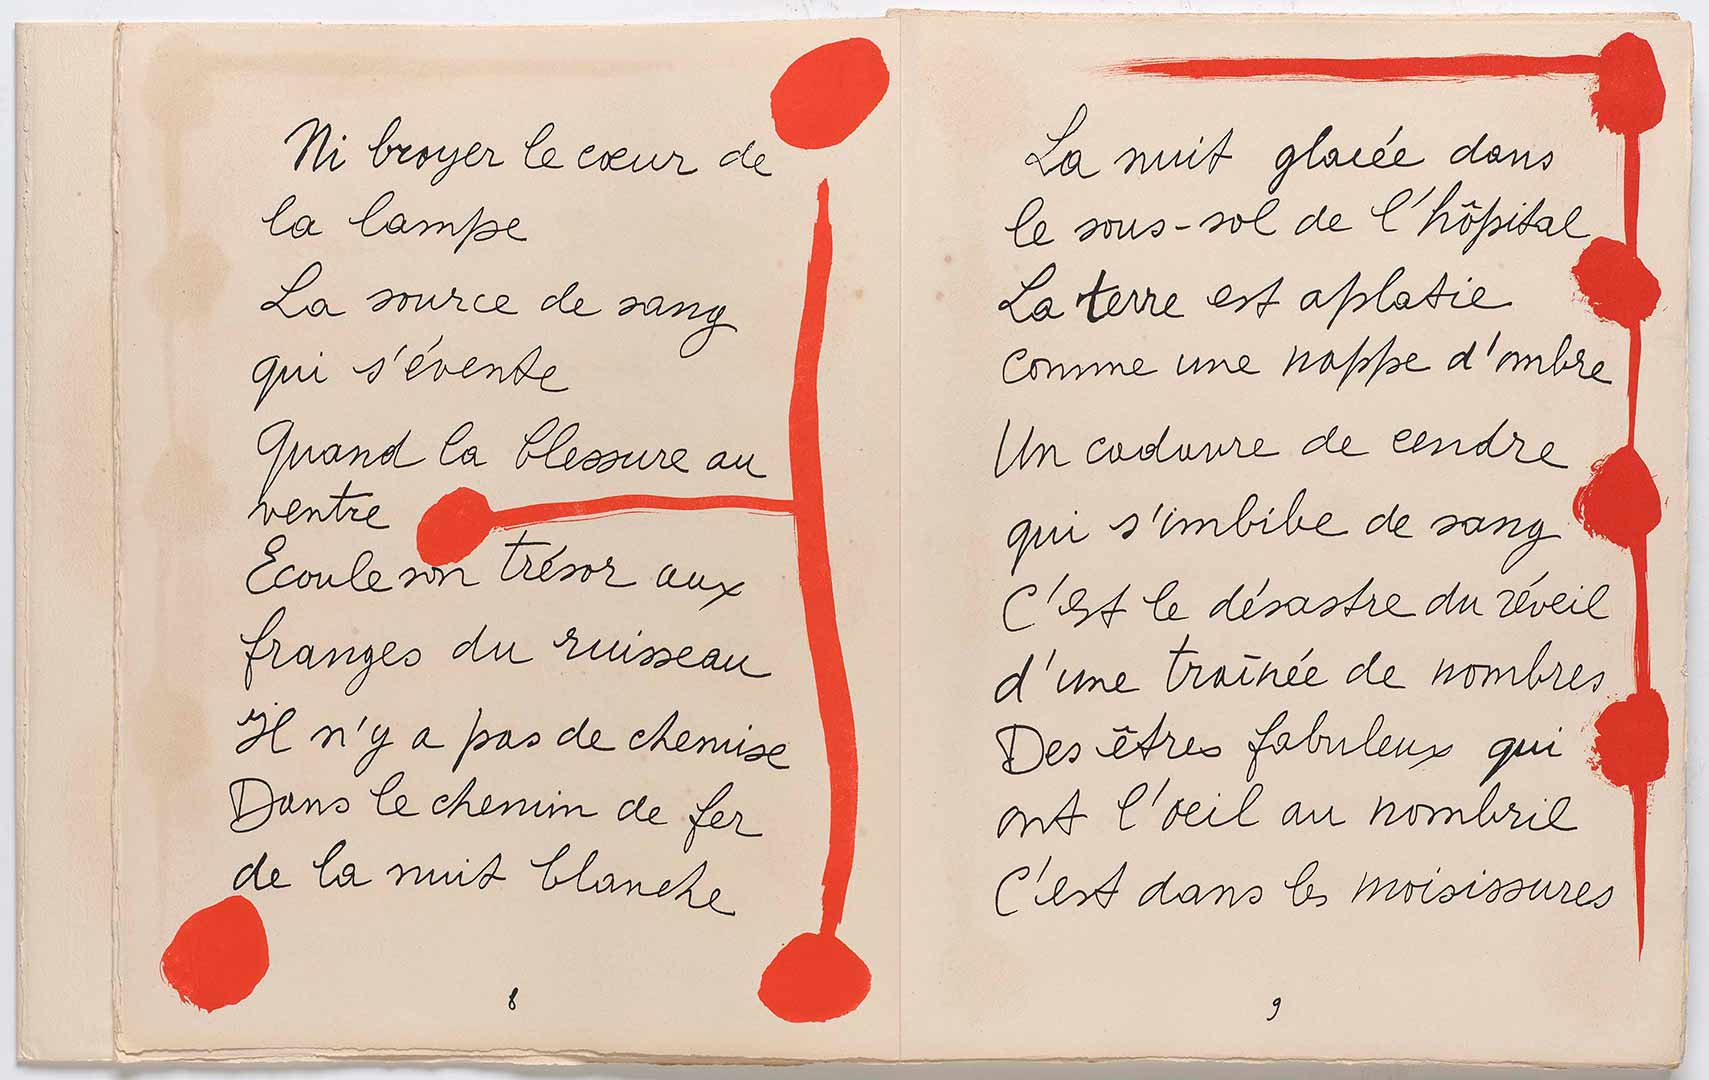 Ni broyer le cœur de
la lampe
La source de sang
qui s'évente
Quand la blessure au
ventre
Ecoule son trésor aux
franges du ruisseau
Il n'y a pas de chemise
Dans le chemin de fer
de la nuit blanche
8
La nuit glacée dans
le sous-sol de l'hôpital
La terre est aplatie
comme une nappe d'ombre
Un cadavre de cendre
qui s'imbibe de sang
C'est le désastre du réveil
d'une traînée de nombres
Des êtres fabuleux qui
ont l'oeil au nombril
C'est dans les moisissures
9